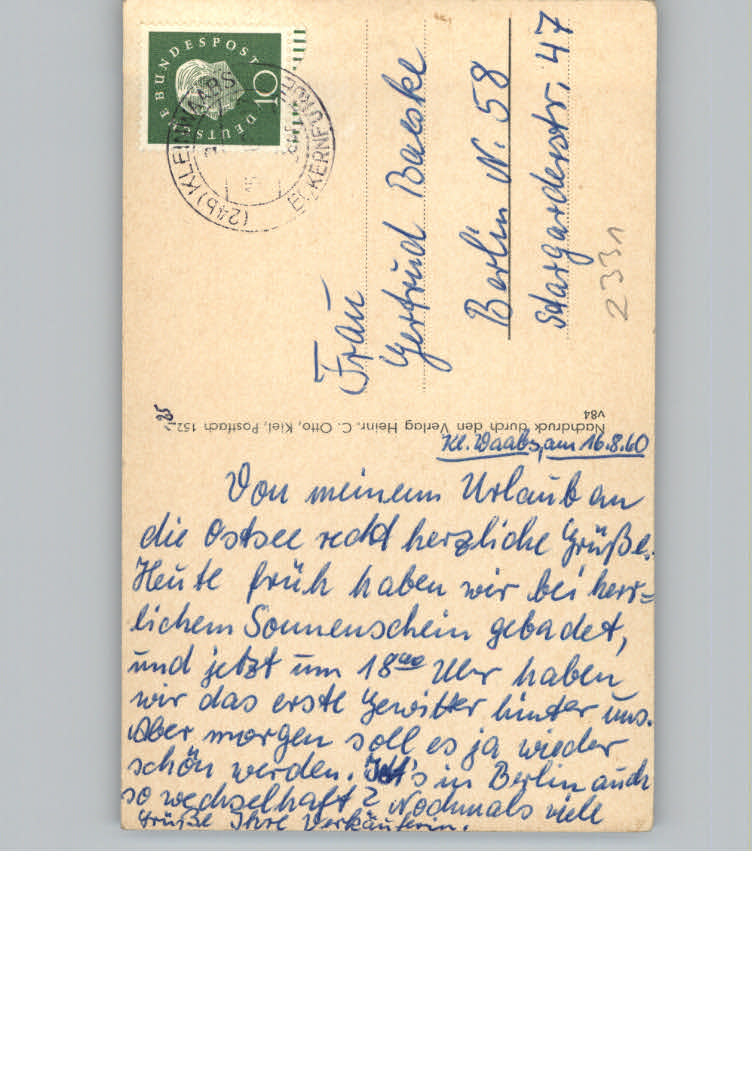 DEUTSCHE BUNDESPOST
10
(24b) KLEINWAABS
ECKERNFÖRDE
Frau
Gertrud Baeske
Berlin N. 58
Stargarderstr. 47
2331
Nachdruck durch den Verlag Heinr. C. Otto, Kiel, Postfach 152
v84
Kl. Waabs, am 16.8.60
Von meinem Urlaub an
die Ostsee recht herzliche Grüße.
Heute früh haben wir bei herr=
lichem Sonnenschein gebadet,
und jetzt um 18⁰⁰ Uhr haben
wir das erste Gewitter hinter uns.
Aber morgen soll es ja wieder
schön werden. Ist's in Berlin auch
so wechselhaft? Nochmals viele
Grüße Ihre Verkäuferin.